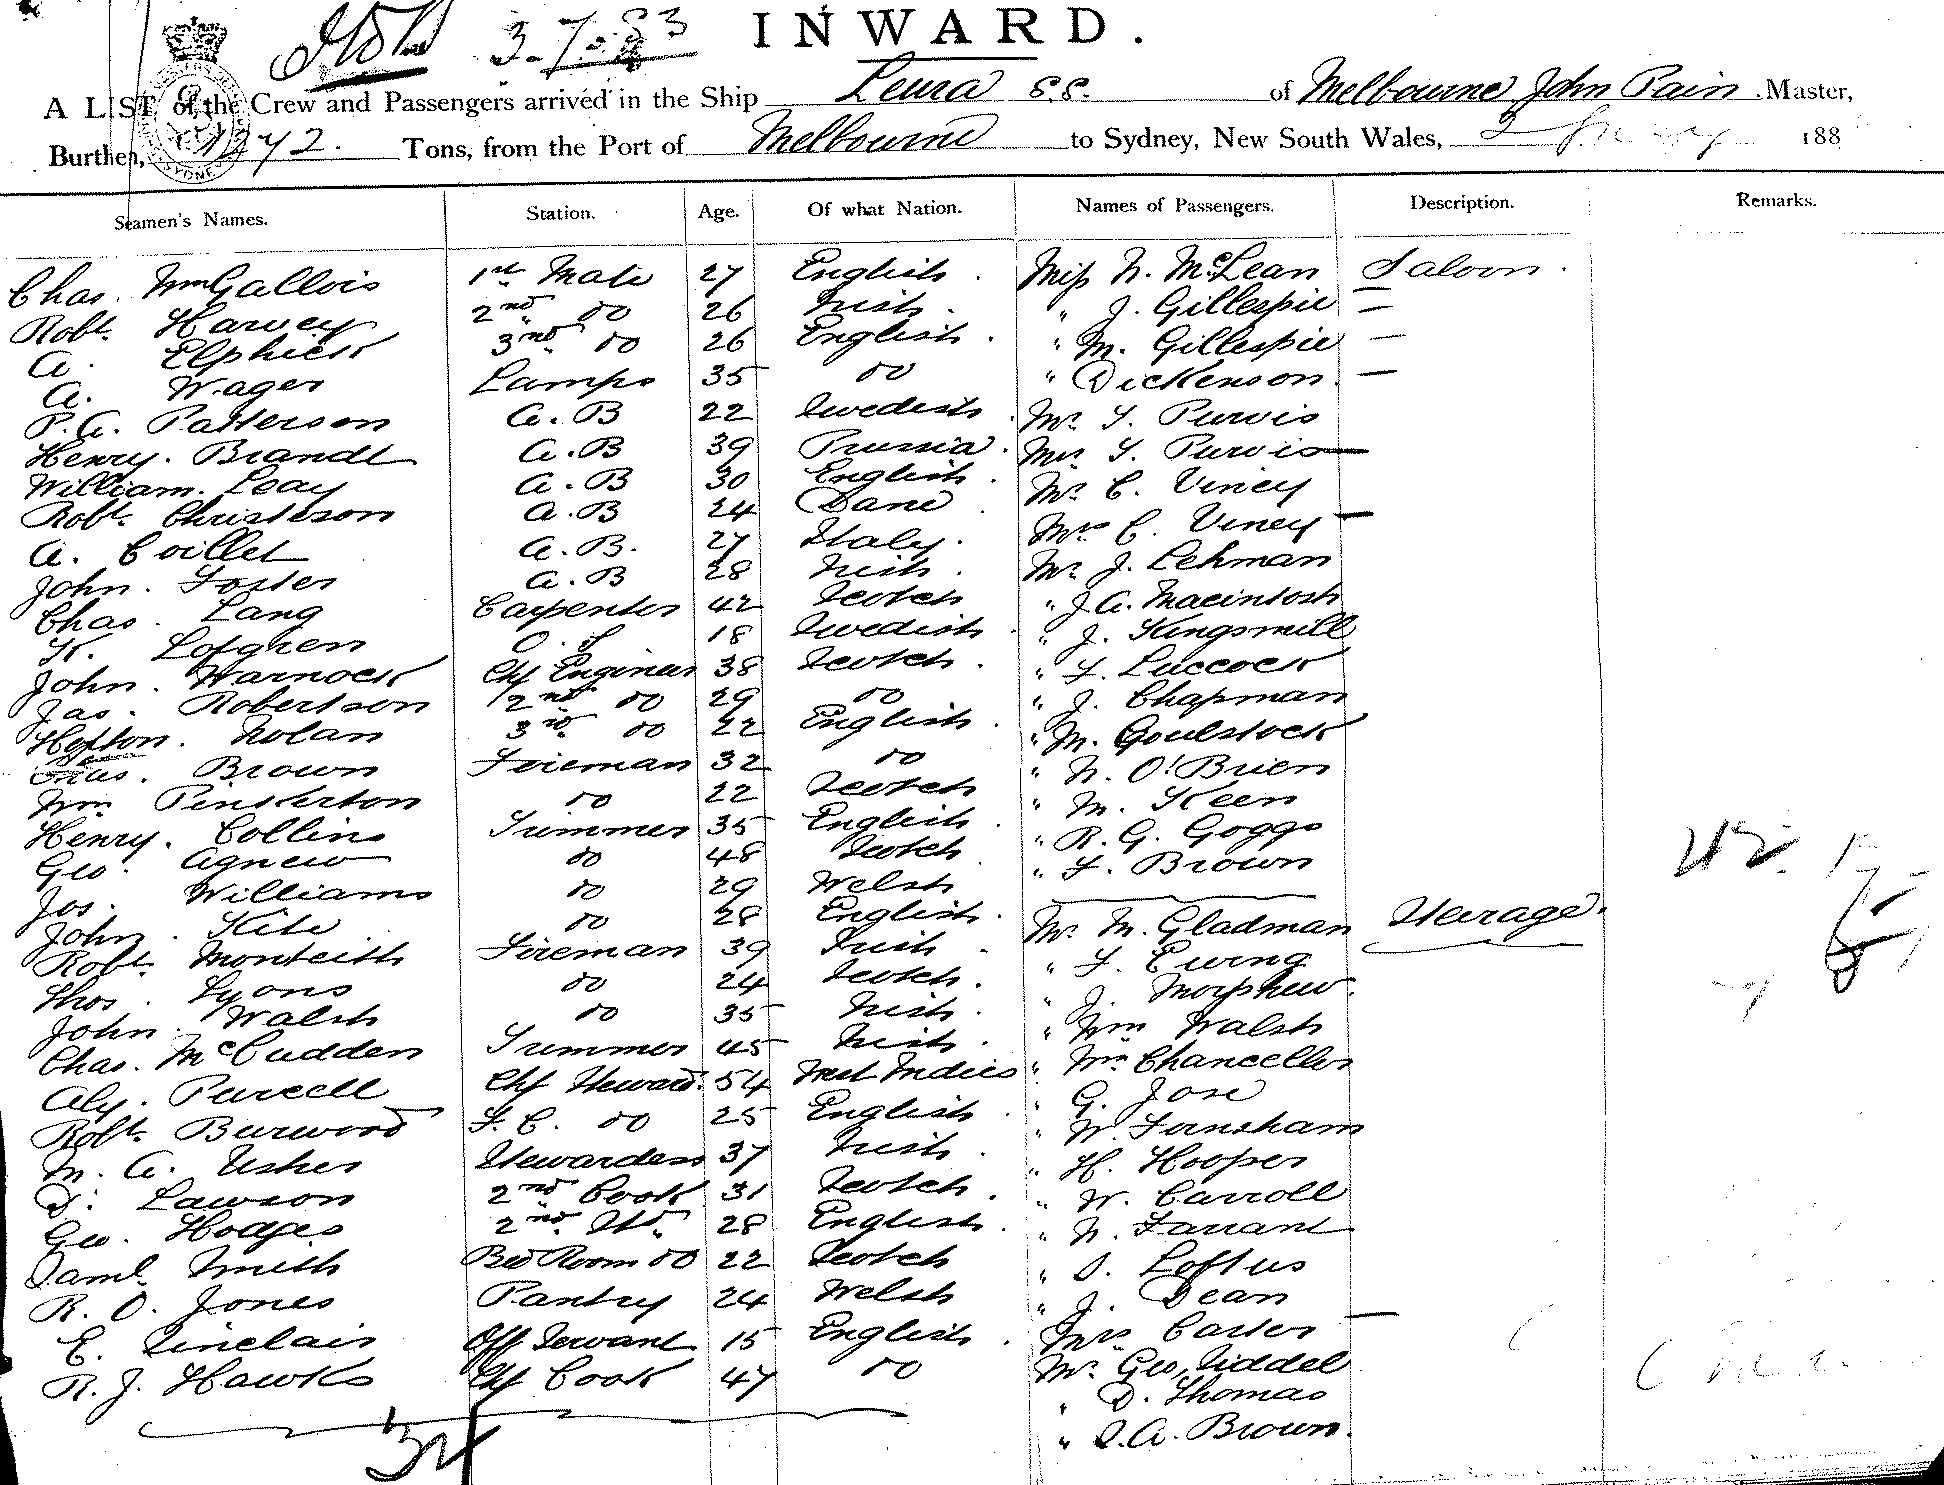 3-7-83 INWARD.
A LIST of the Crew and Passengers arrived in the Ship Leura s.s. of Melbourne John Pain Master,
Burthen, 1242. Tons, from the Port of Melbourne to Sydney, New South Wales, 188
Seamen's Names. Station. Age. Of what Nation. Names of Passengers. Description. Remarks.
Chas. Wm Gallois 1st Mate 27 English. Miss N. McLean Saloon.
Robt. Harvey 2nd do 26 Irish. " J. Gillespie —
A. Elphick 3nd do 26 English. " M. Gillespie —
A. Wager Lamps 35 do " Dickenson. —
P.A. Patterson A.B 22 Swedish. Mr. T. Purvis
Henry. Brandt A.B 39 Prussia. Mrs T. Purvis —
William. Leay A.B 30 English. Mr. C. Viney
Robt. Christeson A.B 24 Dane Mrs C. Viney —
A. Coillet A.B. 27 Italy. Mr. J. Lehman
John. Foster A.B 28 Irish. " J.A. Macintosh
Chas. Lang Carpenter 42 Scotch " J. Kingsmill
K. Lofgren O.S 18 Swedish. " F. Luccock
John. Warnock Chf Engineer 38 Scotch. " J. Chapman
Jas. Robertson 2nd do 29 do " M. Goulstock
Hefton. Nolan 3rd do 22 English " N. O'Brien
Brown Fireman 32 do " M. Keen
Wm Pinkerton do 22 Scotch " R.G. Goggs
Henry. Collins Trimmer 35 English. " F. Brown
Geo. Agnew do 48 Scotch
Jos. Williams do 29 Welsh
John. Kite do 28 English. Mr. M. Gladman Steerage.
Robt. Monteith Fireman 39 Irish. " F. Ewing
Thos. Lyons do 24 Scotch. " J. Morphew.
John. Walsh do 35 Irish. " Wm Walsh
Chas. McCudden Trimmer 45 Irish. " Wm Chancellor
Aly. Purcell Chf Steward. 54 West Indies " G. Jose
Robt. Burwood F.C. do 25 English " W. Farnsham
M.A. Usher Stewardess 37 Irish. " H. Hooper
D. Lawson 2nd Cook 31 Scotch. " W. Carroll
Geo. Hodges 2nd Std. 28 English. " N. Farrant
Saml. Smith Bed Room do 22 Scotch " S. Loftus
R.O. Jones Pantry 24 Welsh " J. Dean
E. Sinclair Off Servant 15 English. Mrs Carter —
R.J. Hawks Chf Cook 47 do Mr. Geo. Siddel
" D. Thomas
" S.A. Brown.
34